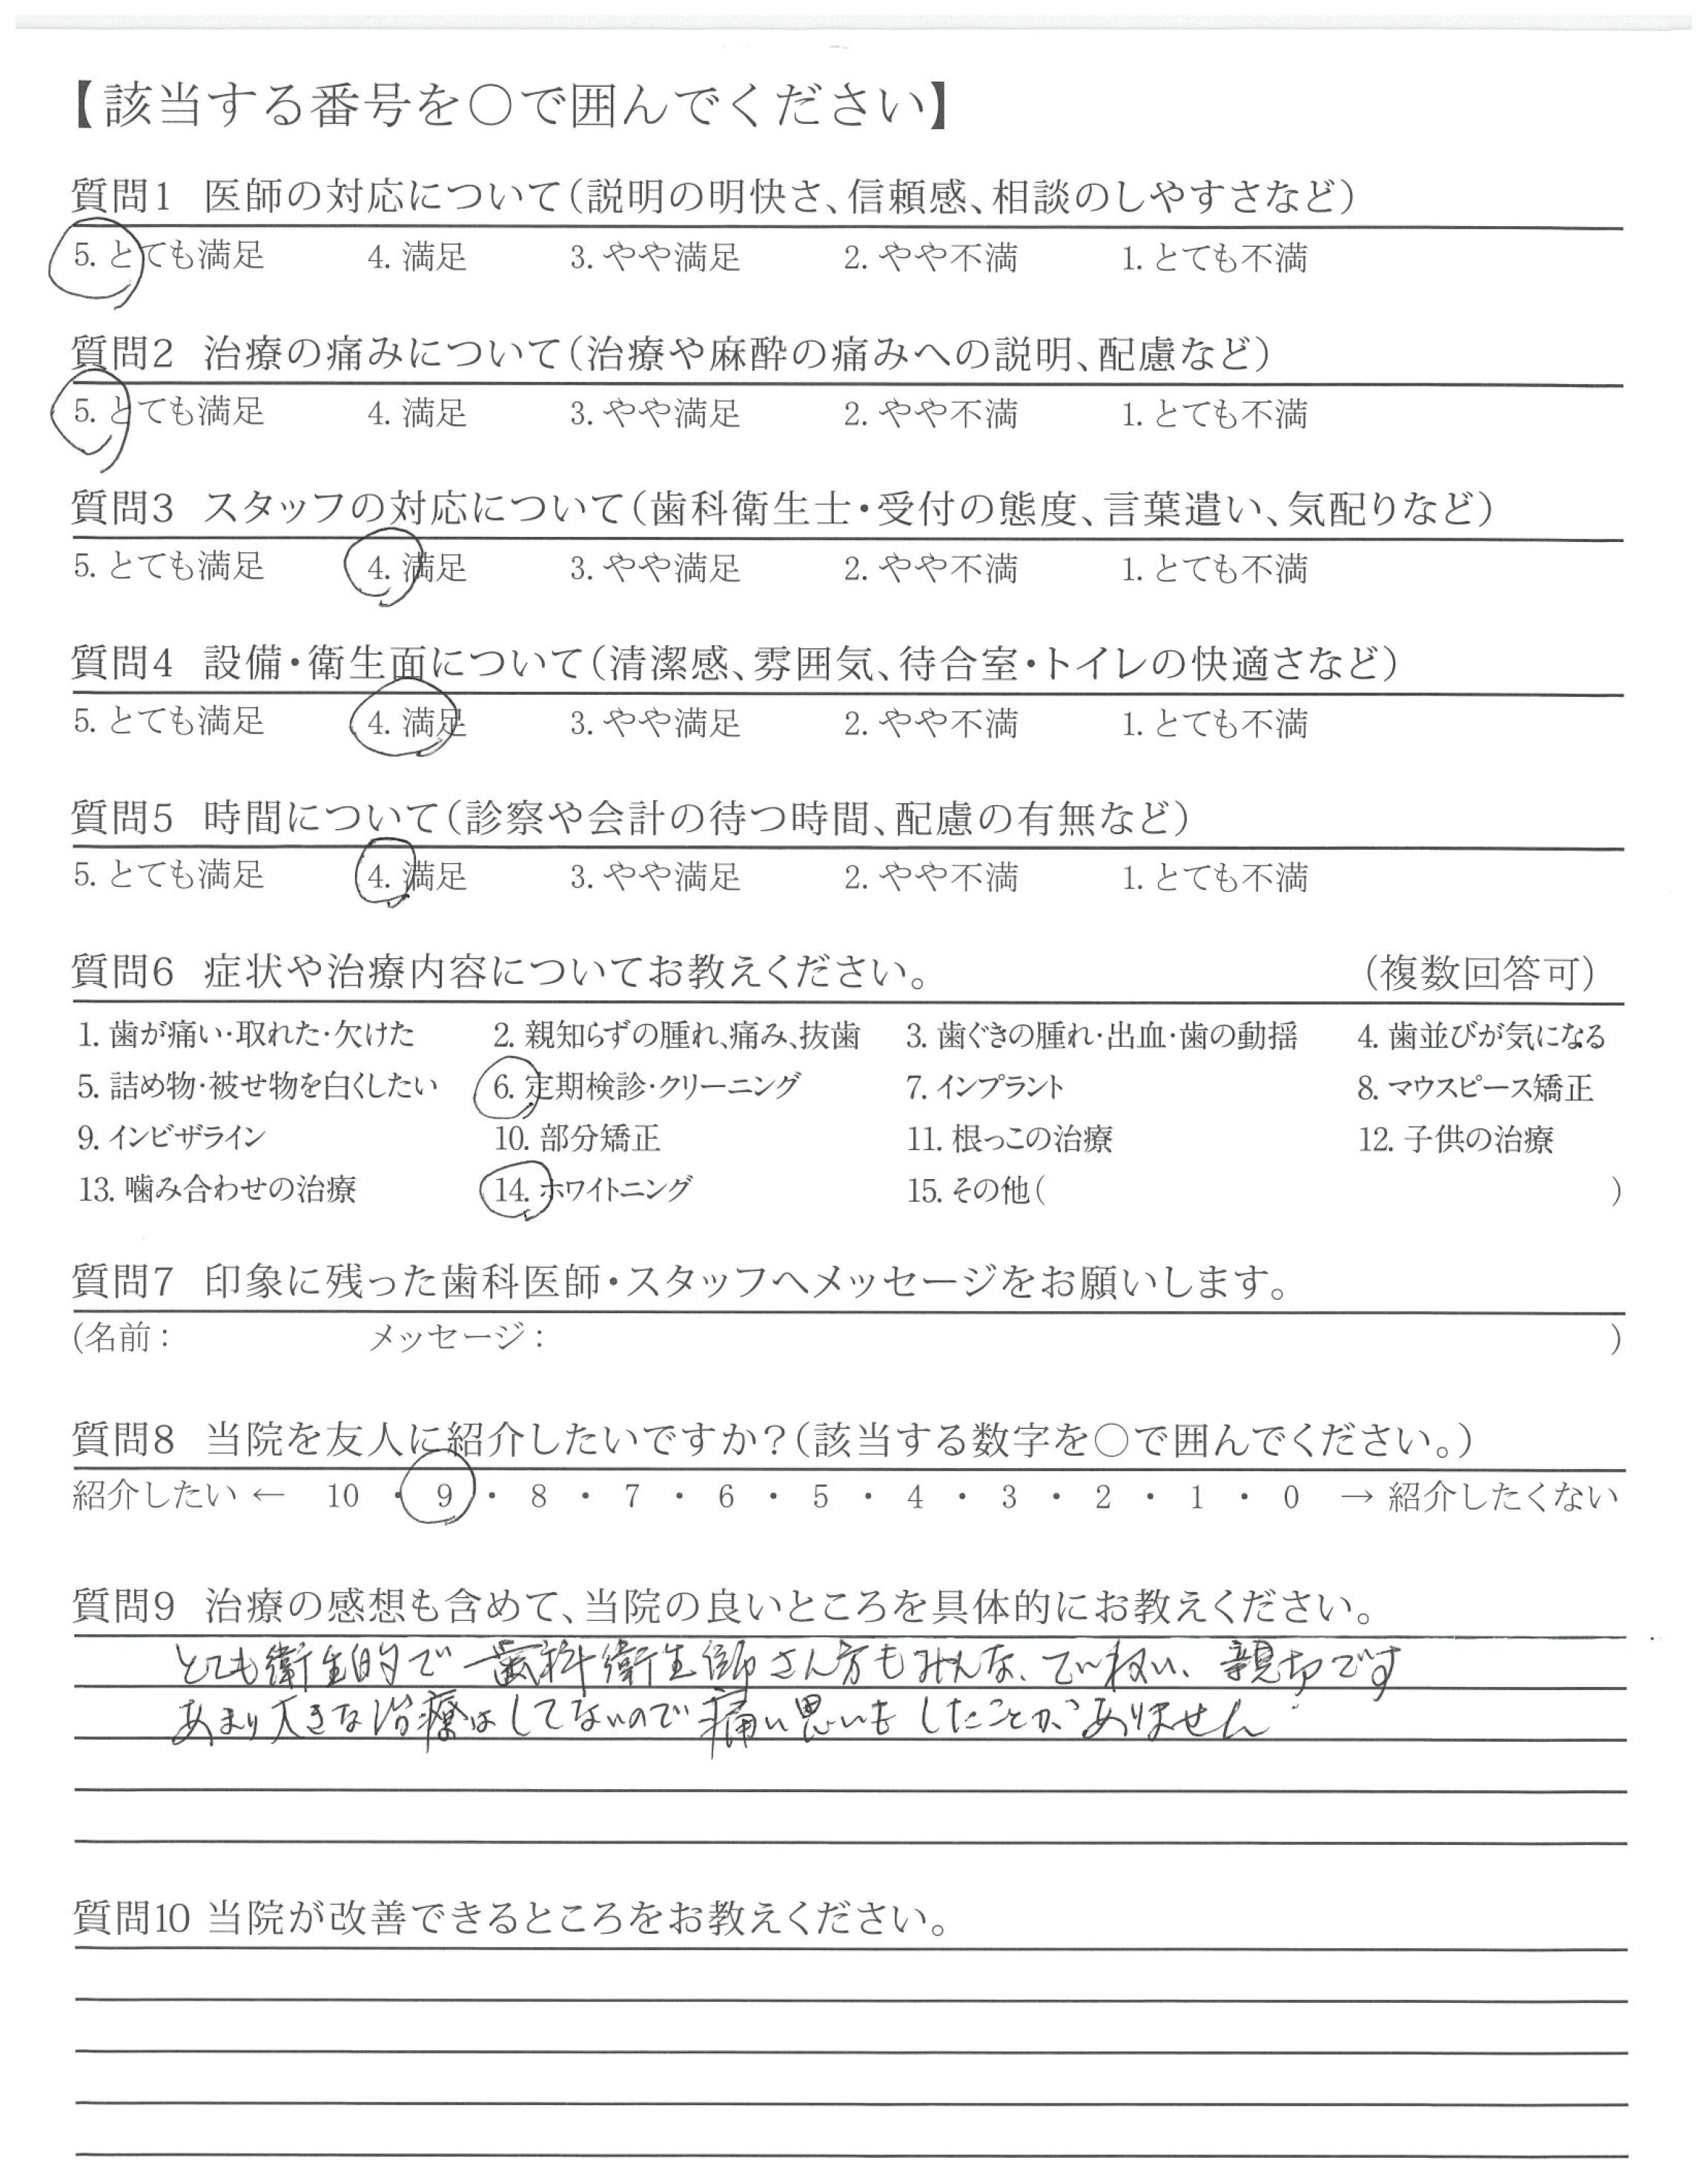 【該当する番号を○で囲んでください】
質問1 医師の対応について(説明の明快さ、信頼感、相談のしやすさなど)
5. とても満足 4. 満足 3. やや満足 2. やや不満 1. とても不満
質問2 治療の痛みについて(治療や麻酔の痛みへの説明、配慮など)
5. とても満足 4. 満足 3. やや満足 2. やや不満 1. とても不満
質問3 スタッフの対応について(歯科衛生士・受付の態度、言葉遣い、気配りなど)
5. とても満足 4. 満足 3. やや満足 2. やや不満 1. とても不満
質問4 設備・衛生面について(清潔感、雰囲気、待合室・トイレの快適さなど)
5. とても満足 4. 満足 3. やや満足 2. やや不満 1. とても不満
質問5 時間について(診察や会計の待つ時間、配慮の有無など)
5. とても満足 4. 満足 3. やや満足 2. やや不満 1. とても不満
質問6 症状や治療内容についてお教えください。 (複数回答可)
1. 歯が痛い・取れた・欠けた 2. 親知らずの腫れ、痛み、抜歯 3. 歯ぐきの腫れ・出血・歯の動揺 4. 歯並びが気になる
5. 詰め物・被せ物を白くしたい 6. 定期検診・クリーニング 7. インプラント 8. マウスピース矯正
9. インビザライン 10. 部分矯正 11. 根っこの治療 12. 子供の治療
13. 噛み合わせの治療 14. ホワイトニング 15. その他( )
質問7 印象に残った歯科医師・スタッフへメッセージをお願いします。
(名前: メッセージ: )
質問8 当院を友人に紹介したいですか?(該当する数字を○で囲んでください。)
紹介したい ← 10 ・ 9 ・ 8 ・ 7 ・ 6 ・ 5 ・ 4 ・ 3 ・ 2 ・ 1 ・ 0 → 紹介したくない
質問9 治療の感想も含めて、当院の良いところを具体的にお教えください。
とても衛生的で歯科衛生師さん方もみんな、ていねい、親切です
あまり大きな治療はしてないので痛い思いもしたことがありません
質問10 当院が改善できるところをお教えください。